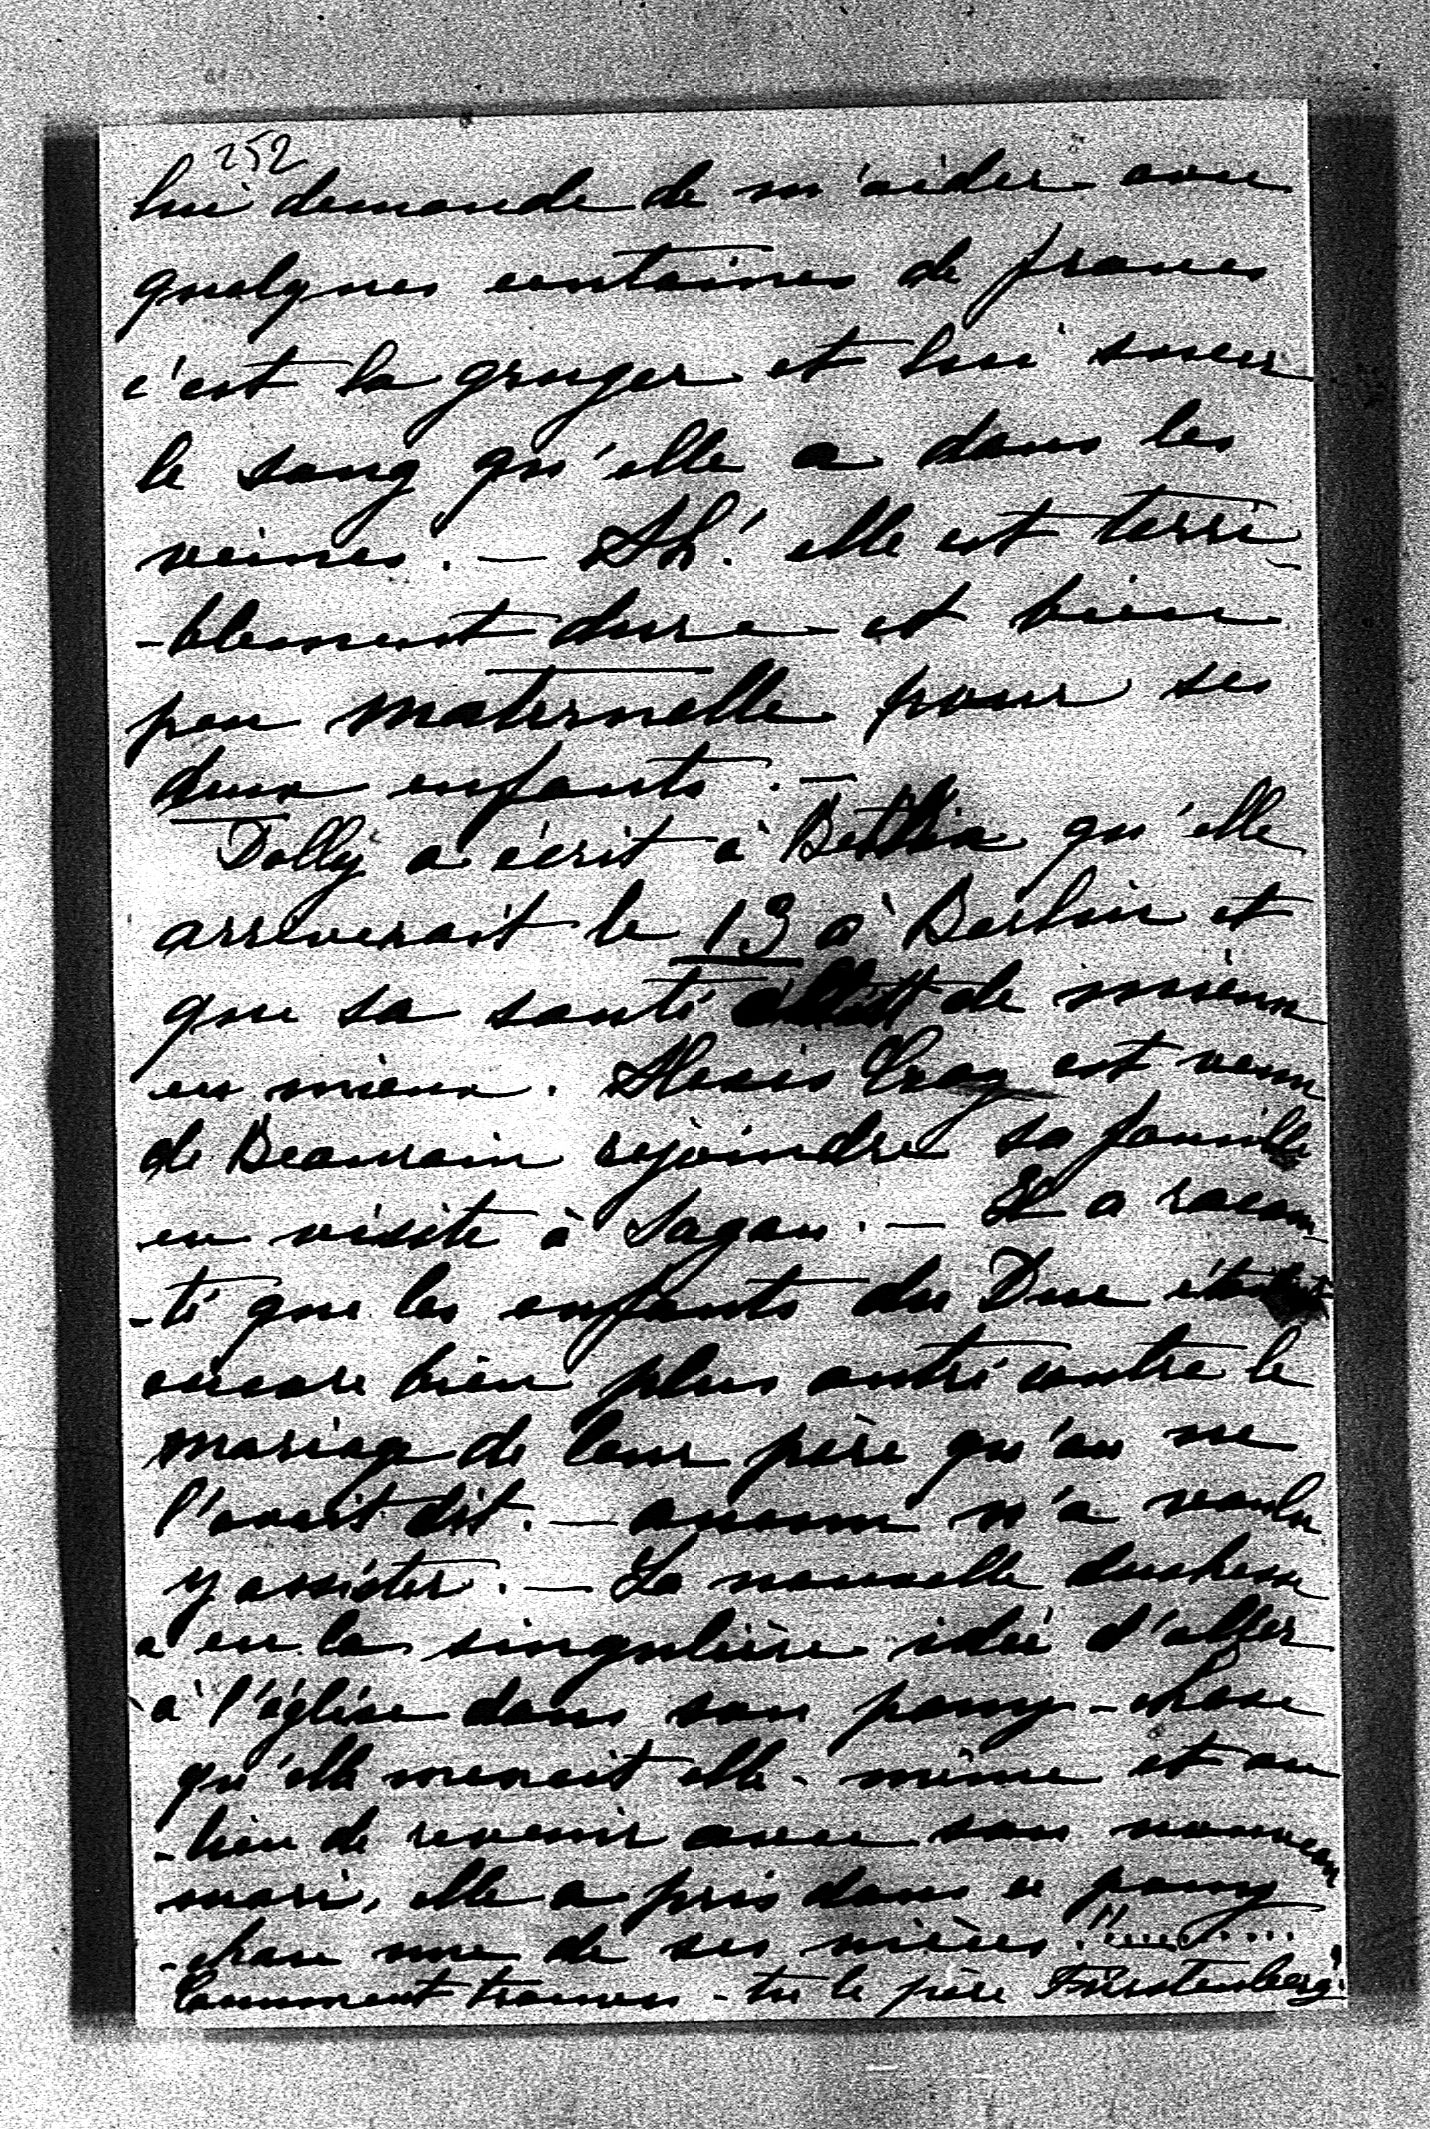 252
lui demande de m'aider avec
quelques centaines de francs
c'est la gruger et lui sucer
le sang qu'elle a dans les
veines. — Ah! elle est terri
-blement dure et bien
peu maternelle pour ses
deux enfants. —
Dolly a écrit à qu'elle
arriverait le 13 à Berlin et
que sa santé allait de mieux
en mieux. Alexis Croy est venu
de Beaurain rejoindre sa famille
en visite à Sagan. — Il a racon
-té que les enfants du Duc étaient
encore bien plus outré contre le
mariage de leur père qu'on ne
l'avait dit. — aucun n'a voulu
y assister. — La nouvelle duchesse
a eu la singulière idée d'aller
à l'église dans son pony-chase
qu'elle menait elle-même et au
-lieu de revenir avec son nouveau
mari, elle a pris dans ce pony
-chase une de ses nièces !!........
Comment trouves-tu le père Fürstenberg